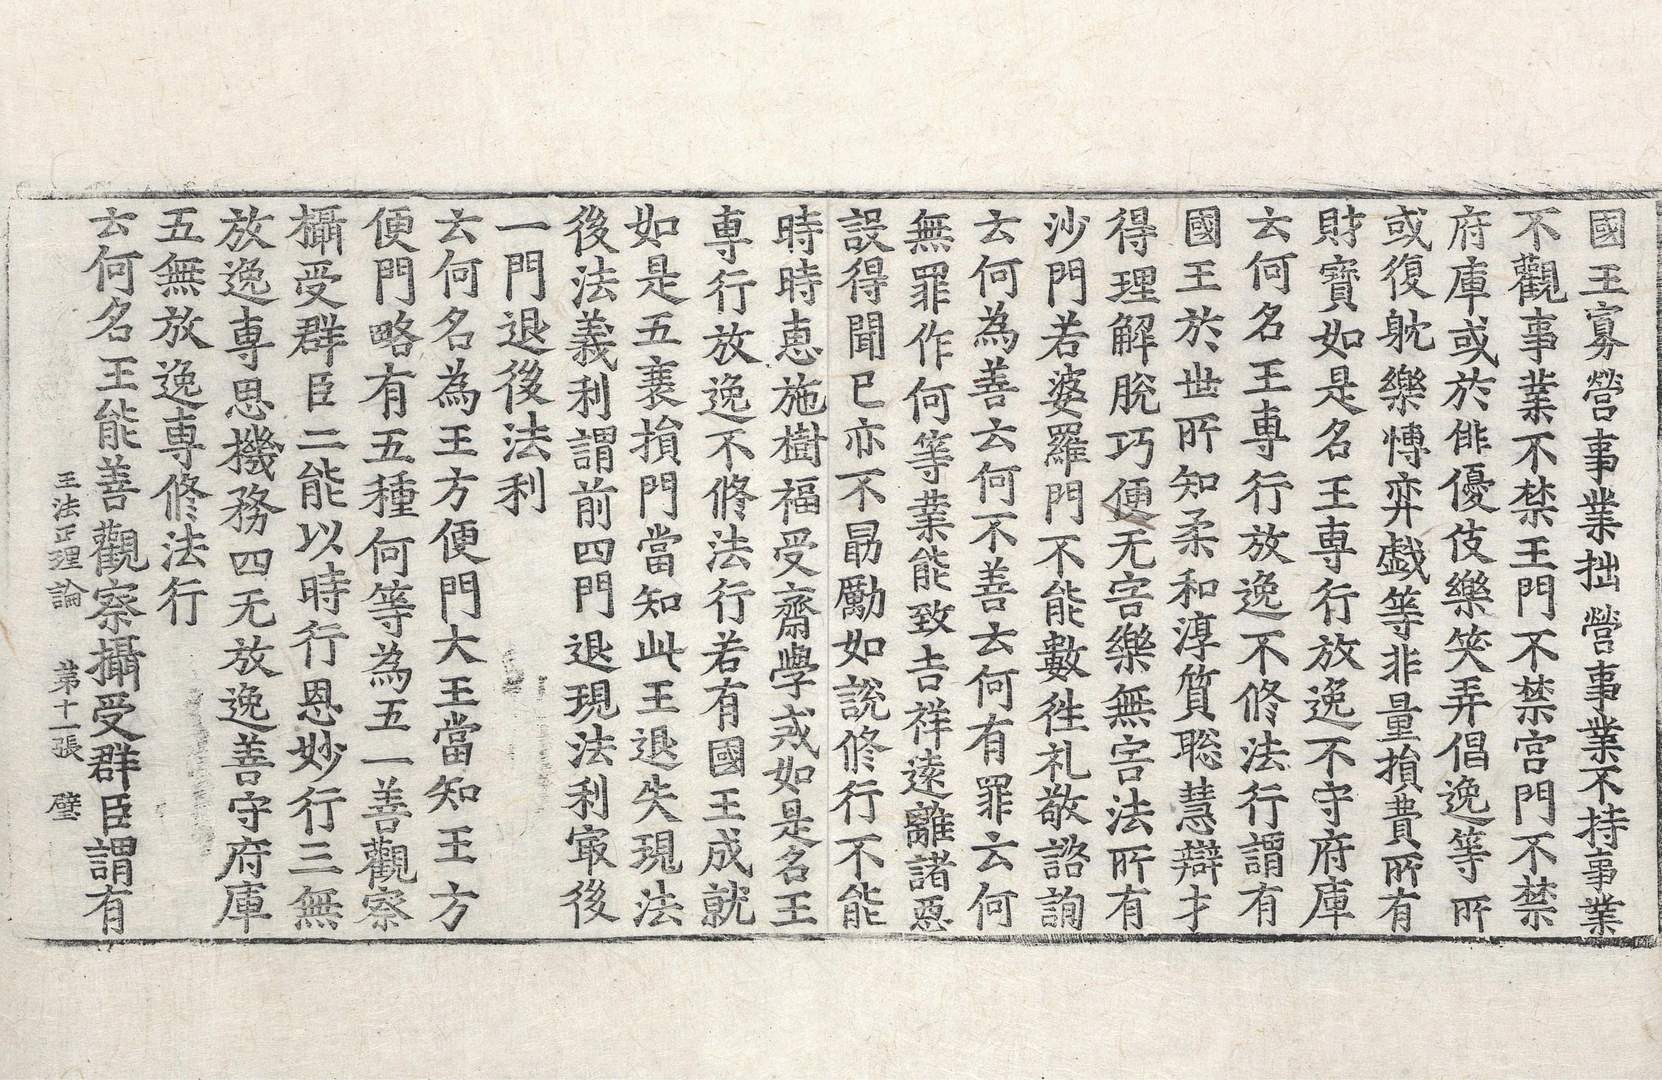 國王寡營事業拙營事業不持事業
不觀事業不禁王門不禁宮門不禁
府庫或於俳優伎樂笑弄倡逸等所
或復躭樂慱弈戯等非量損費所有
財寶如是名王專行放逸不守府庫
云何名王專行放逸不修法行謂有
國王於世所知柔和淳質聡慧辯才
得理解脫巧便无害樂無害法所有
沙門若婆羅門不能數往礼敬諮詢
云何為善云何不善云何有罪云何
無罪作何等業能致吉祥遠離諸惡
設得聞已亦不勗勵如說修行不能
時時恵施樹福受齋學戒如是名王
專行放逸不修法行若有國王成就
如是五衰損門當知此王退失現法
後法義利謂前四門退現法利㝡後
一門退後法利
云何名為王方便門大王當知王方
便門略有五種何等為五一善觀察
攝受群臣二能以時行恩妙行三無
放逸專思機務四无放逸善守府庫
五無放逸專修法行
云何名王能善觀察攝受群臣謂有
王法正理論 第十一張 璧